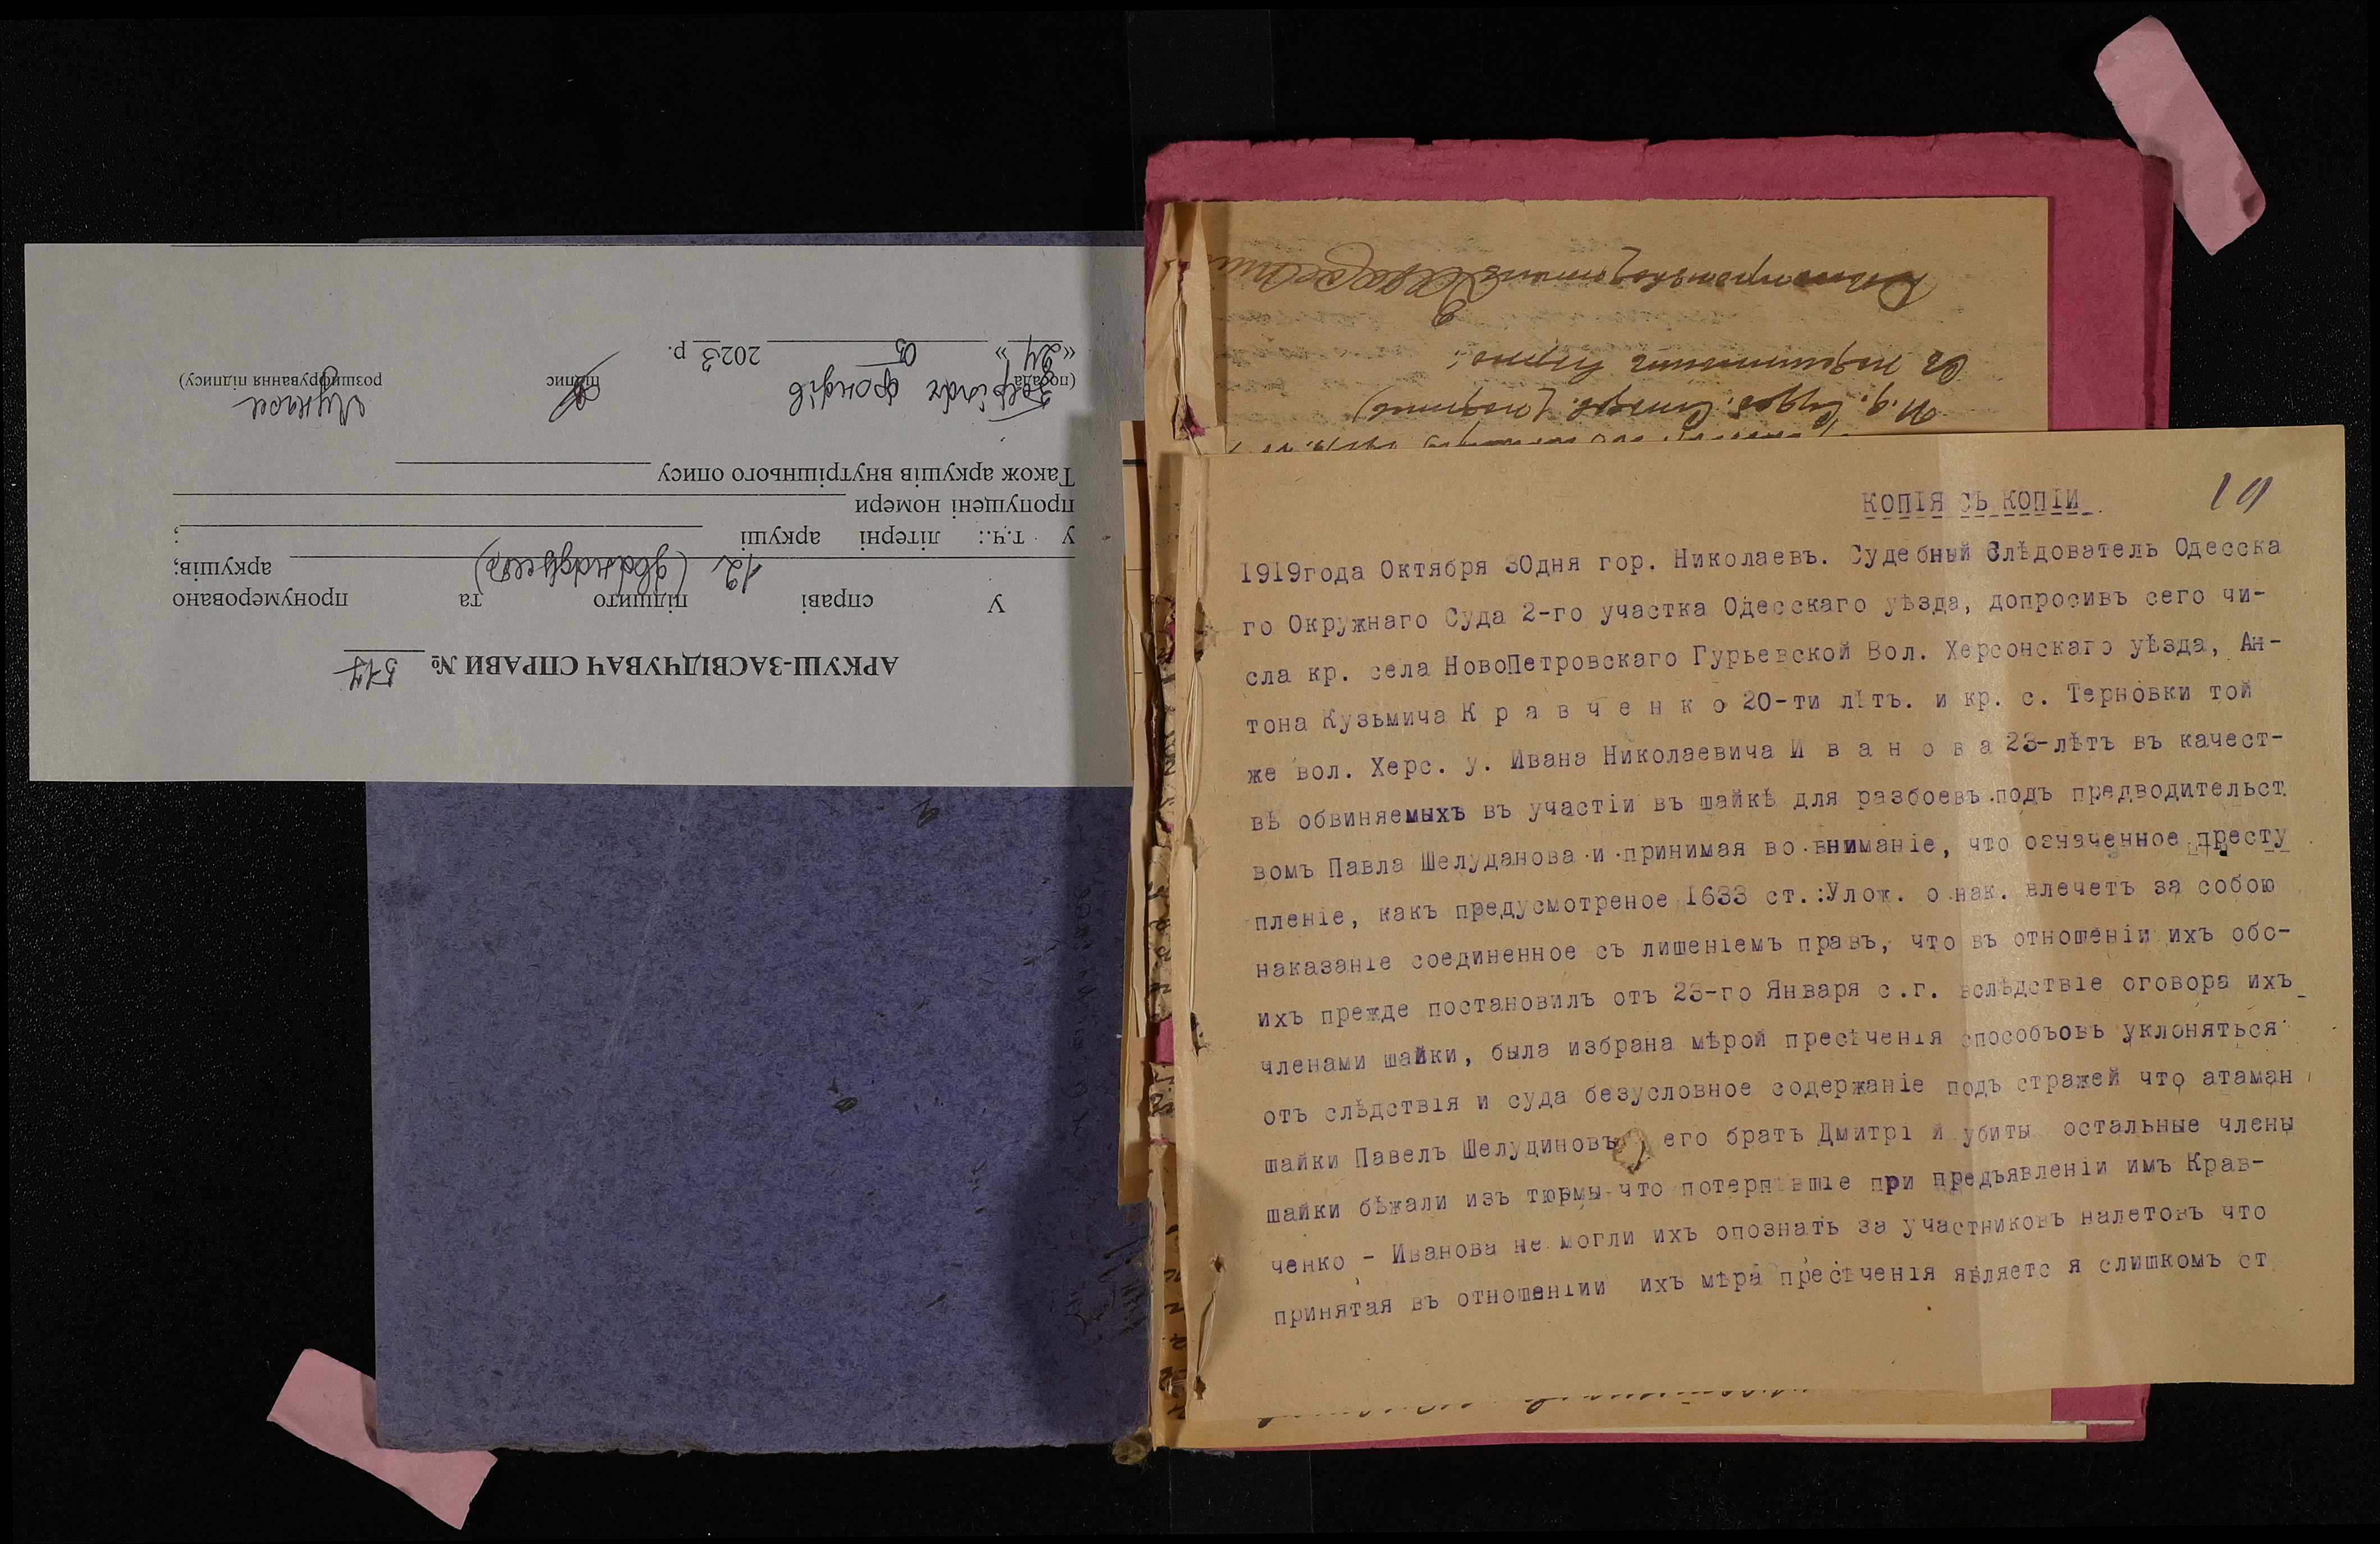 АРКУШ-ЗАСВІДЧУВАЧ СПРАВИ № 517
У справі підшито та пронумеровано
12 (дванадцять) аркушів;
у т.ч.: літерні аркуші ;
пропущені номери
Також аркушів внутрішнього опису
фондів
(посада підпис розшифрування підпису)
«24» 05 2023 р.
И. д. Судеб. Следов. (подпись)
Съ подлиннымъ верно:
КОПІЯ СЪ КОПІИ
19
1919года Октября 30дня гор. Николаевъ. Судебный Слѣдователь Одесска
го Окружнаго Суда 2-го участка Одесскаго уѣзда, допросивъ сего чи-
сла кр. села НовоПетровскаго Гурьевской Вол. Херсонскаго уѣзда, Ан-
тона Кузьмича К р а в ч е н к о 20-ти лѣтъ. и кр. с. Терновки той
же вол. Херс. у. Ивана Николаевича И в а н о в а 23-лѣтъ въ качест-
вѣ обвиняемыхъ въ участіи въ шайкѣ для разбоевъ подъ предводительст
вомъ Павла Шелуданова и принимая во вниманіе, что означенное престу
пленіе, какъ предусмотреное 1633 ст.:Улож. о нак. влечетъ за собою
наказаніе соединенное съ лишеніемъ правъ, что въ отношеніи ихъ обо-
ихъ прежде постановилъ отъ 23-го Января с.г. вслѣдствіе оговора ихъ
членами шайки, была избрана мѣрой пресѣченія способъовъ уклоняться
отъ слѣдствія и суда безусловное содержаніе подъ стражей что атаман
шайки Павелъ Шелудиновъ, его братъ Дмитрі й убиты остальные члены
шайки бѣжали изъ тюрмы что потерпѣвшіе при предъявленіи имъ Крав-
ченко - Иванова не могли ихъ опознать за участниковъ налетовъ что
принятая въ отношеніии ихъ мѣра пресѣченія являетс я слишкомъ ст